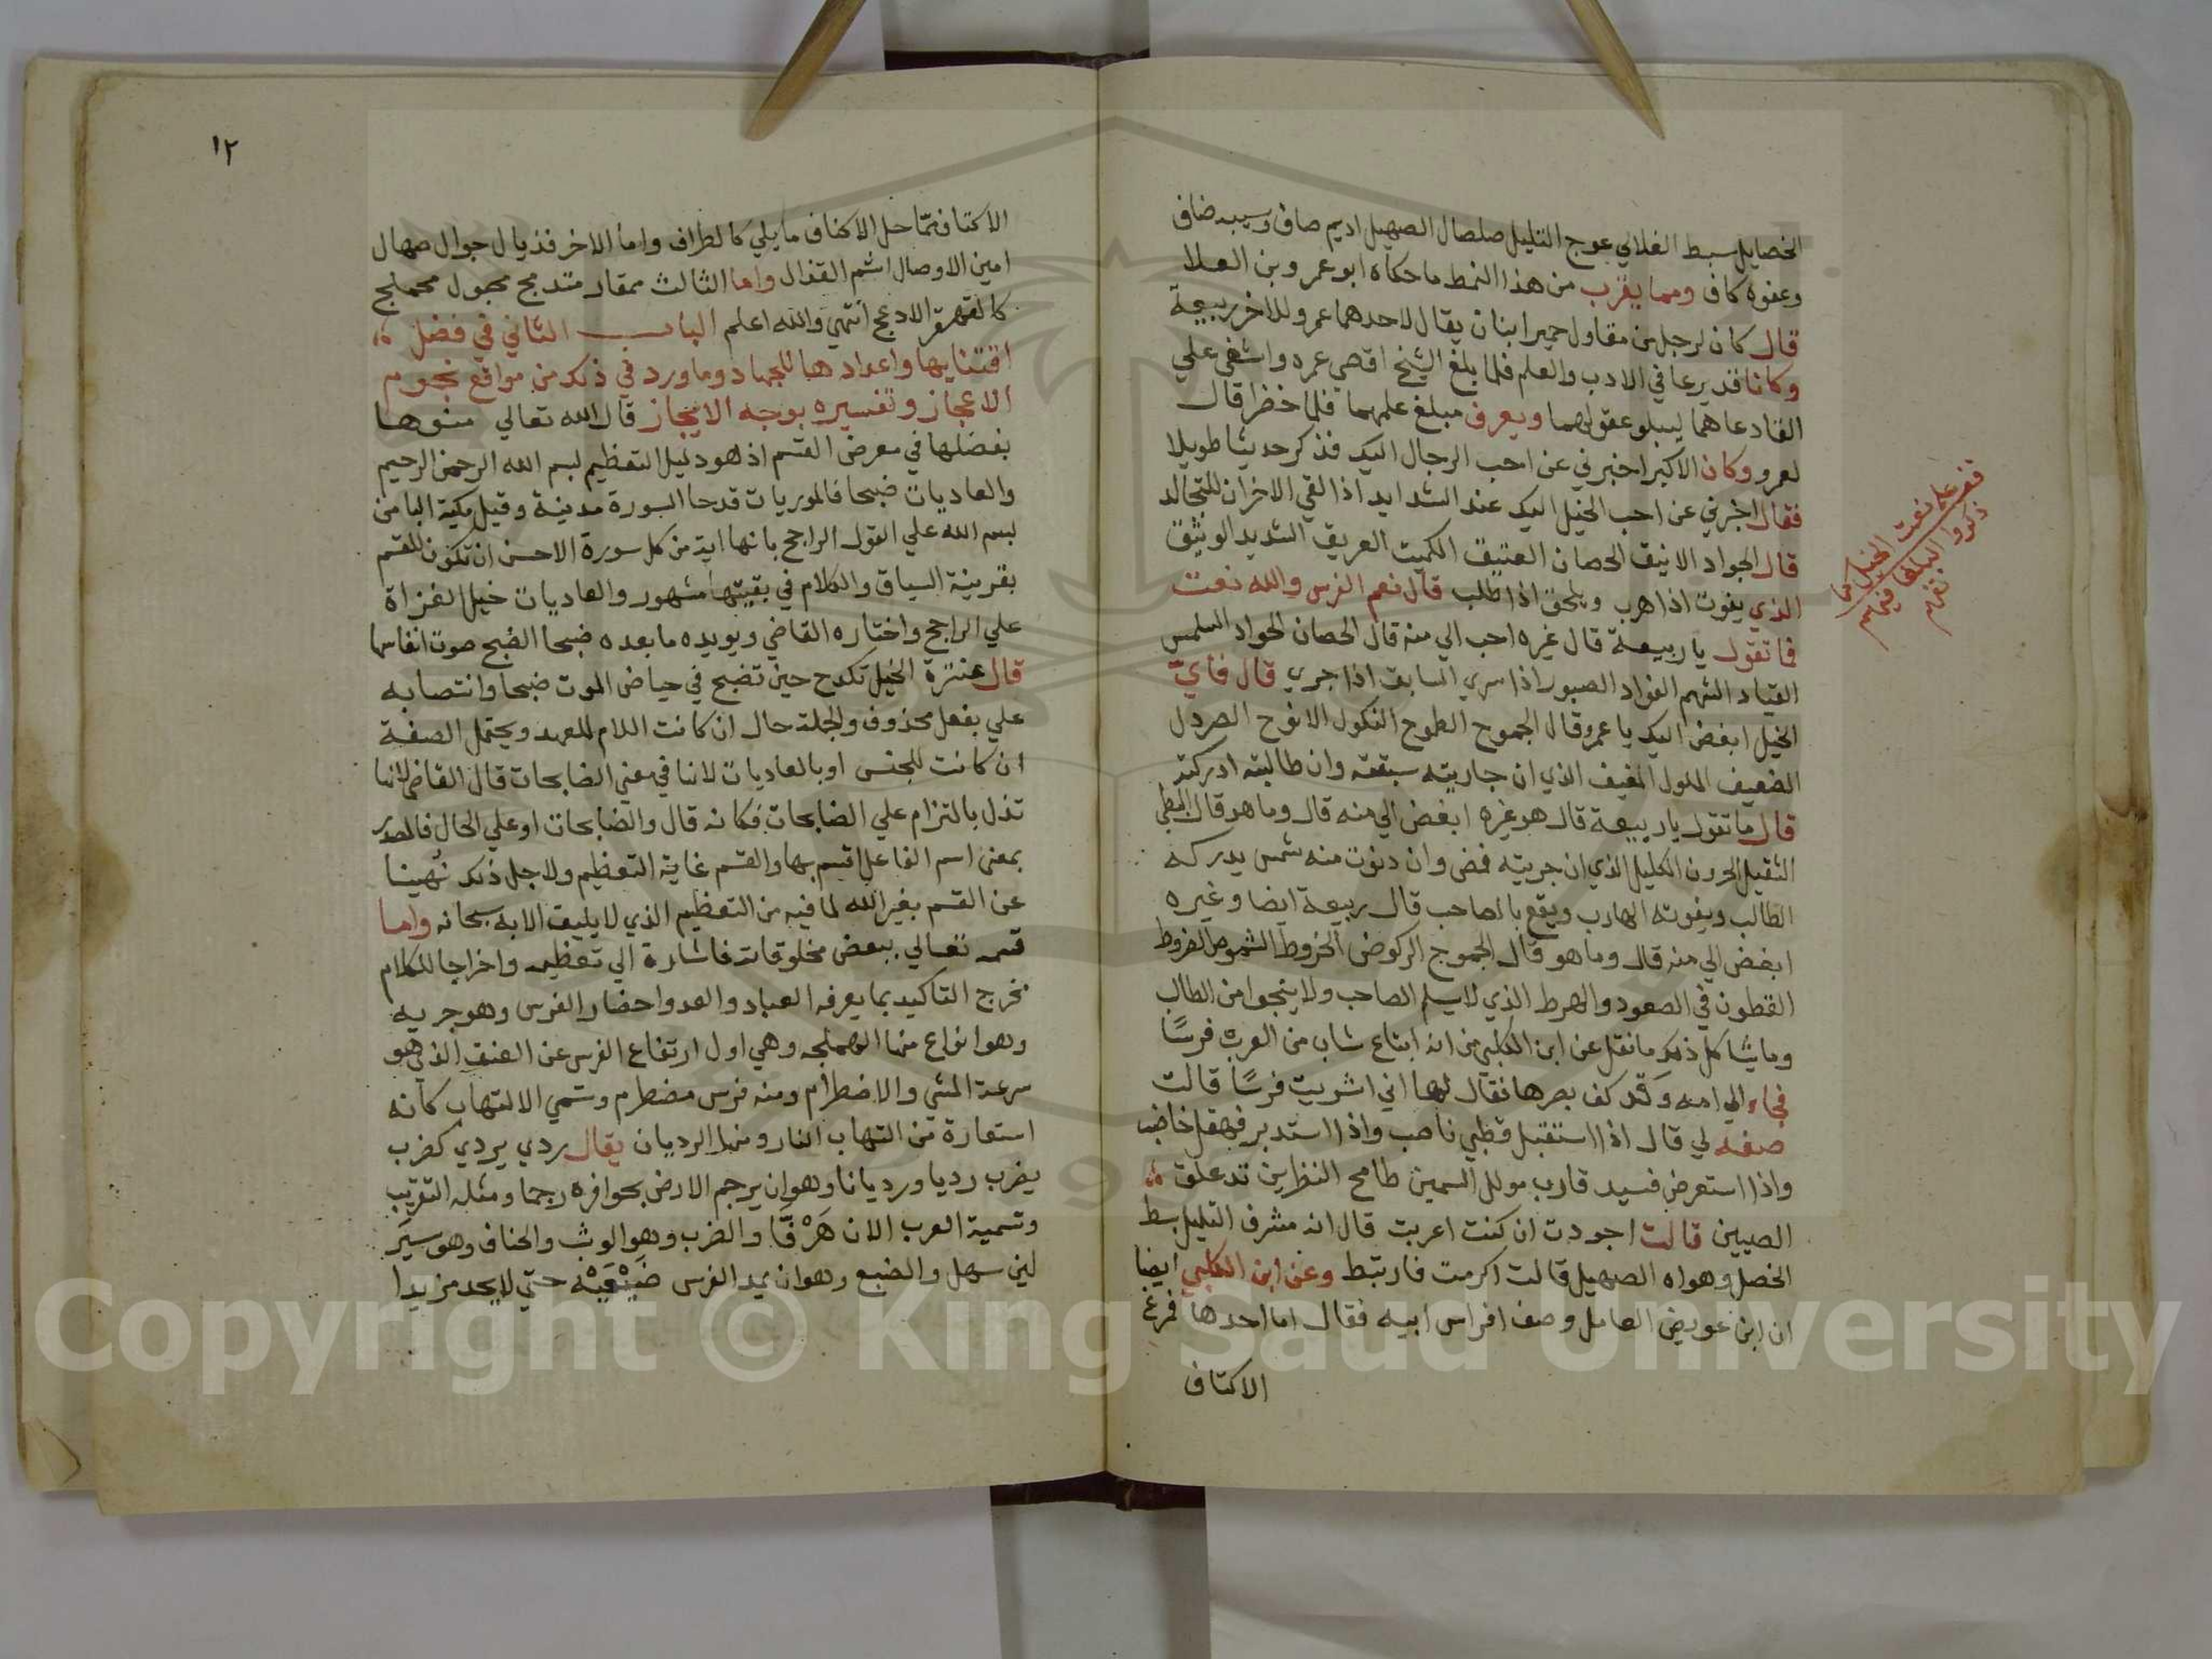 الخصايل سبط الفلايل عوج التليل صلصال الصهيل اديم صاف وسبيب ضاف
وعفوه كاف ومما يقرب من هذا النمط ما حكاه ابو عمرو بن العلا
قال كان لرجل من مقاول حمير ابنان يقال لاحدهما عمرو وللاخر ربيعة
وكانا قد برعا في الادب والعلم فلما بلغ الشيخ اقصي عمره واشفي علي
الفنا دعاهما ليبلو عقولهما ويعرف مبلغ علمهما فلما حضرا قال
لعمرو وكان الاكبر اخبرني عن احب الرجال اليك فذكر حديثا طويلا
فقال اخبرني عن احب الخيل اليك عند الشدايد اذا التقي الاقران للتجالد
قال الجواد الانيق الحصان العتيق الكميت العريق الشديد الوثيق
الذي يفوت اذا هرب ويلحق اذا طلب قال نعم الفرس والله نعت
فما تقول يا ربيعة قال غيره احب الي منه قال الحصان الجواد السلس
القياد الشهم الفواد الصبور اذا سري السابق اذا جري قال فايّ
الخيل ابغض اليك يا عمرو قال الجموح الطموح النكول الانوح الصردل
الضعيف الملول العنيف الذي ان جاريته سبقته وان طالبته ادركته
قال ما تقول يا ربيعة قال هو غيره ابغض الي منه قال وما هو قال البطي
الثقيل الحرون الكليل الذي ان جريته قمص وان دنوت منه شمس يدركه
الطالب ويفوته الهارب ويقع بالصاحب قال ربيعة ايضا وغيره
ابغض الي منه قال وما هو قال الجموح الركوض الخروط الشموص الضروط
القطوف في الصعود والهبوط الذي لا يسلم الصاحب ولا ينجوا من الطالب
وما يشاكل ذلك ما نقل عن ابن الكلبي من انه ابتاع شاب من العرب فرسًا
فجاء الي امه وقد كف بصرها فقال لها اني اشتريت فرسًا قالت
صفه لي قال اذا استقبل فظبي ناصب واذا استدبر فهقل خاضب
واذا استعرض فسيد قارب مولل السمعين طامح النظرين مذعلق
الصبيين قالت اجودت ان كنت اعربت قال انه مشرف التليل سبط
الخصل وهواه الصهيل قالت اكرمت فارتبط وعن ابن الكلبي ايضا
ان ابن عويض العامل وصف افراس ابيه فقال اما احدها ففرع
الاكتاف
ذكروا البلغا فيهم
١٢
الاكتاف متماحل الاكناف ماثل كالطراف واما الاخر فذيال جوال صهال
امين الاوصال اشم القذال واما الثالث فمغار مندمج محبول محملج
كالقهقر الادعج انتهي والله اعلم الباب الثاني في فضل
اقتنايها واعدادها للجهاد وما ورد في ذلك من مواقع نجوم
الاعجاز وتفسيره بوجه الايجاز قال الله تعالي منوها
بفضلها في معرض القسم اذ هو دليل التعظيم بسم الله الرحمن الرحيم
والعاديات ضبحا فالموريات قدحا السورة مدنية وقيل مكية البا من
بسم الله علي القول الراجح بانها اية من كل سورة الاحسن ان تكون للقسم
بقرينة السياق والكلام في بقيتها مشهور والعاديات خيل الغزاة
علي الراجح واختاره القاضي ويويده ما بعده ضبحا الضبح صوت انفاسها
قال عنترة الخيل تكدح حين تضبح في حياض الموت ضبحا وانتصابه
علي بفعل محذوف والجملة حال ان كانت اللام للعهد ويحتمل الصفة
ان كانت للجنس او بالعاديات لانها في معني الضابحات قال القاضي لانها
تدل بالتزام علي الضابحات فكانه قال والضابحات او علي الحال فالمصدر
بمعني اسم الفاعل اقسم بها والقسم غاية التعظيم ولاجل ذلك نهينا
عن القسم بغير الله لما فيه من التعظيم الذي لا يليق الا به سبحانه واما
قسمه تعالي ببعض مخلوقاته فاشارة الي تعظيمه واخراجا للكلام
مخرج التاكيد بما يعرفه العباد والعدو احضار الفرس وهو جريه
وهو انواع منها الهملجه وهي اول ارتفاع الفرس عن العنق الذي هو
سرعة المشي والاضطرام ومنه فرس مضطرم وسمي الالتهاب كانه
استعارة من التهاب النار ومنها الرديان يقال ردي يردي كضرب
يضرب رديا ورديانا وهو ان يرجم الارض بحوافره رجما ومثله التقريب
وتسميه العرب الان هَرْفًا والضرب وهو الوثب والخناف وهو سير
لين سهل والضبع وهو ان يمد الفرس ضَبْعَيْه حتي لا يجد مزيدا
Copyright © King Saud University